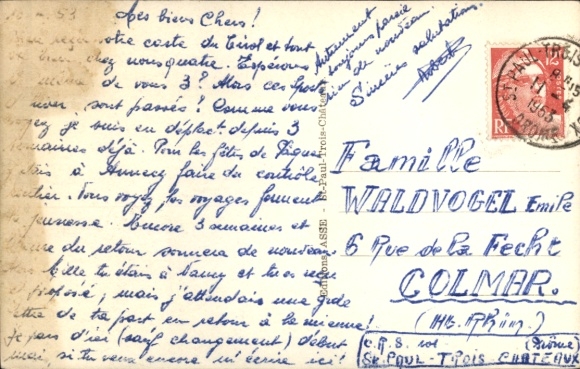 53
Mes biens Chers!
votre carte du Tirol et tout
bien chez nous quatre. Espérons
même de vous 3? Alors ces sports
d'hiver sont passés! Comme vous
voyez je suis en déplact. depuis 3
semaines déjà. Pour les fêtes de Pâques
j'étais à Annecy faire du contrôle
Vous voyez, les voyages forment
jeunesse. Encore 3 semaines et
l'heure du retour sonnera de nouveau.
tu étais à Nancy et tu es
, mais j'attendais une
lettre de ta part en retour à la mienne!
Je pars d'ici (sauf changement) début
mai, si tu veux encore m'écrire ici!
Autrement
toujours
rien de nouveau.
Sincères salutations.
Robert
Editions LASSE - St-Paul-Trois-Châteaux
ST PAUL-TROIS
11-4
1953
DROME
12
RF
Famille
WALDVOGEL Emile
6 Rue de la Fecht
COLMAR.
(Ht. Rhin.)
C.R.S. (Drôme)
St. PAUL-TROIS-CHATEAUX